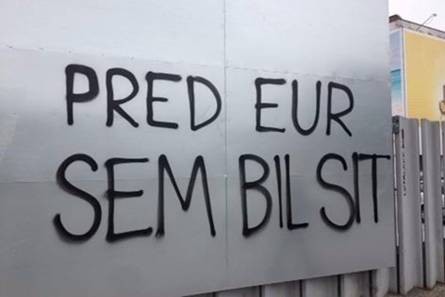 PRED EUR
SEM BIL SIT